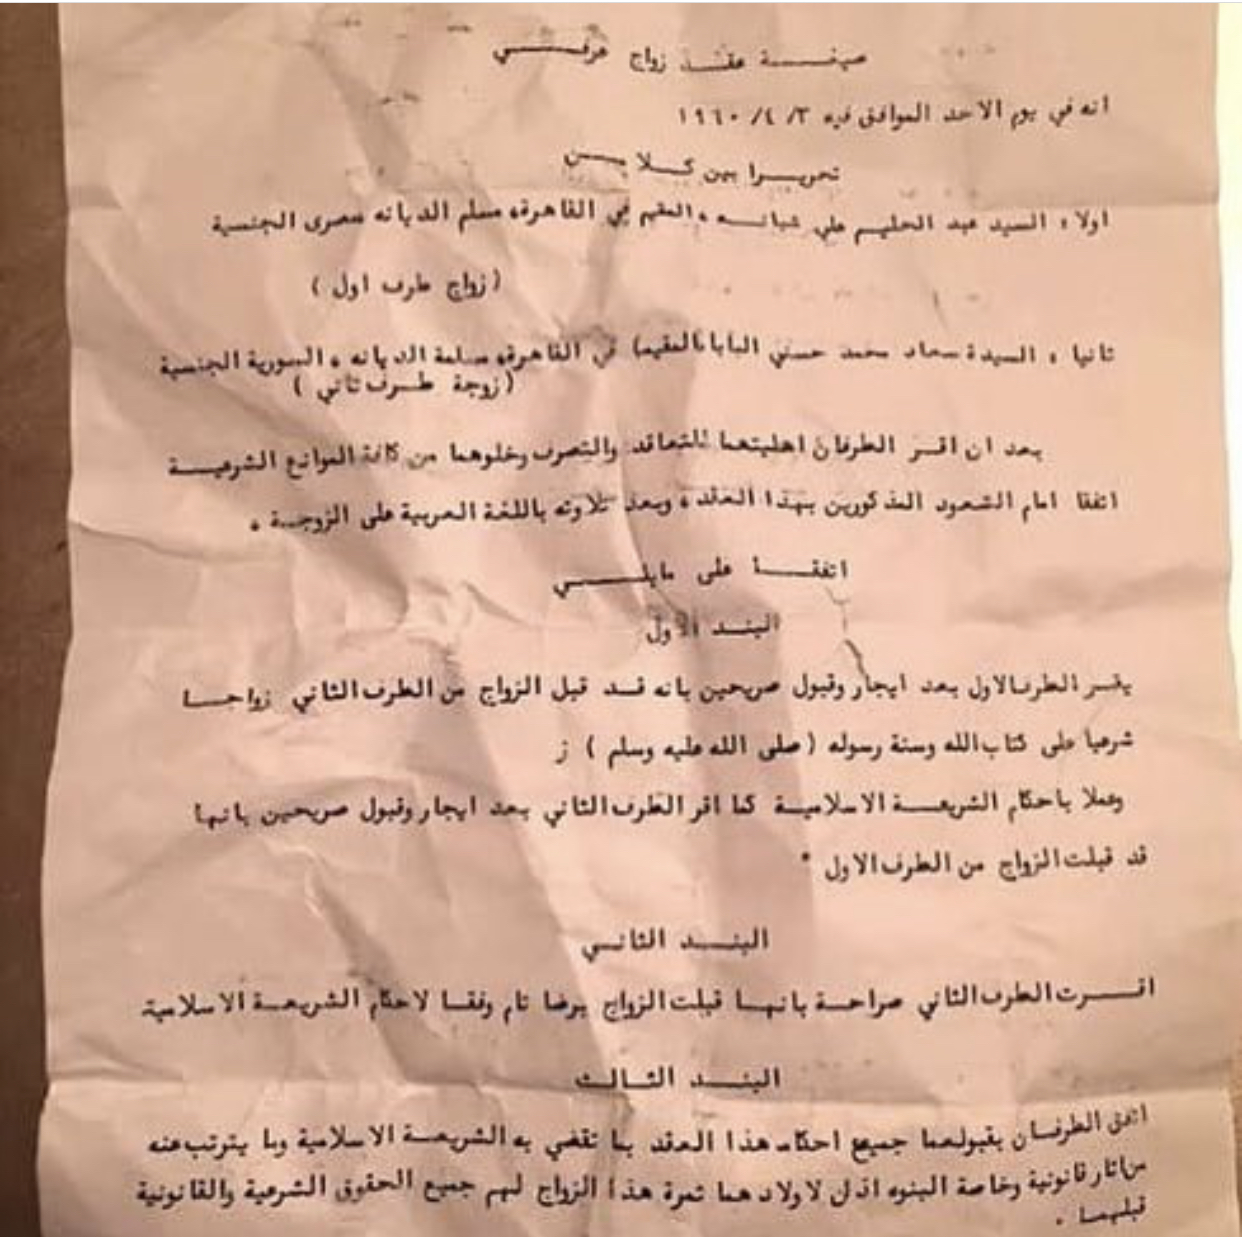 صيغة عقد زواج عرفي
انه في يوم الاحد الموافق فيه ٣/ ٤/ ١٩٦٠
تحريرا بين كلا من
اولا ، السيد عبد الحليم علي شبانه ، المقيم في القاهرة، مسلم الديانه مصرى الجنسية
(زواج طرف اول )
ثانيا ، السيدة سعاد محمد حسني البابا المقيما في القاهرة، مسلمة الديانه ، السورية الجنسية
(زوجة طرف ثاني )
بعد ان اقر الطرفان اهليتهما للتعاقد والتصرف وخلوهما من كافة الموانع الشرعية
اتفقا امام الشعود المذكورين بهذا العقد، وبعد تلاوته باللغة العربية على الزوجة .
اتفقا على مايلي
البند الاول
يقر الطرف الاول بعد ايجار وقبول صريحين بانه قد قبل الزواج من الطرف الثاني زواجا
شرعيا على كتاب الله وسنة رسوله (صلى الله عليه وسلم ) ز
وعملا باحكام الشريعة الاسلامية كما اقر الطرف الثاني بعد ايجار وقبول صريحين بانها
قد قبلت الزواج من الطرف الاول .
البند الثاني
اقرت الطرف الثاني صراحة بانها قبلت الزواج برضا تام وفقا لاحكام الشريعة الاسلامية
البند الثالث
اتفق الطرفان بقبولهما جميع احكام هذا العقد بما تقضي به الشريعة الاسلامية وما يترتب عنه
من اثار قانونية وخاصة البنوه اذ لاولادهما ثمرة هذا الزواج لهم جميع الحقوق الشرعية والقانونية
قبلهما .